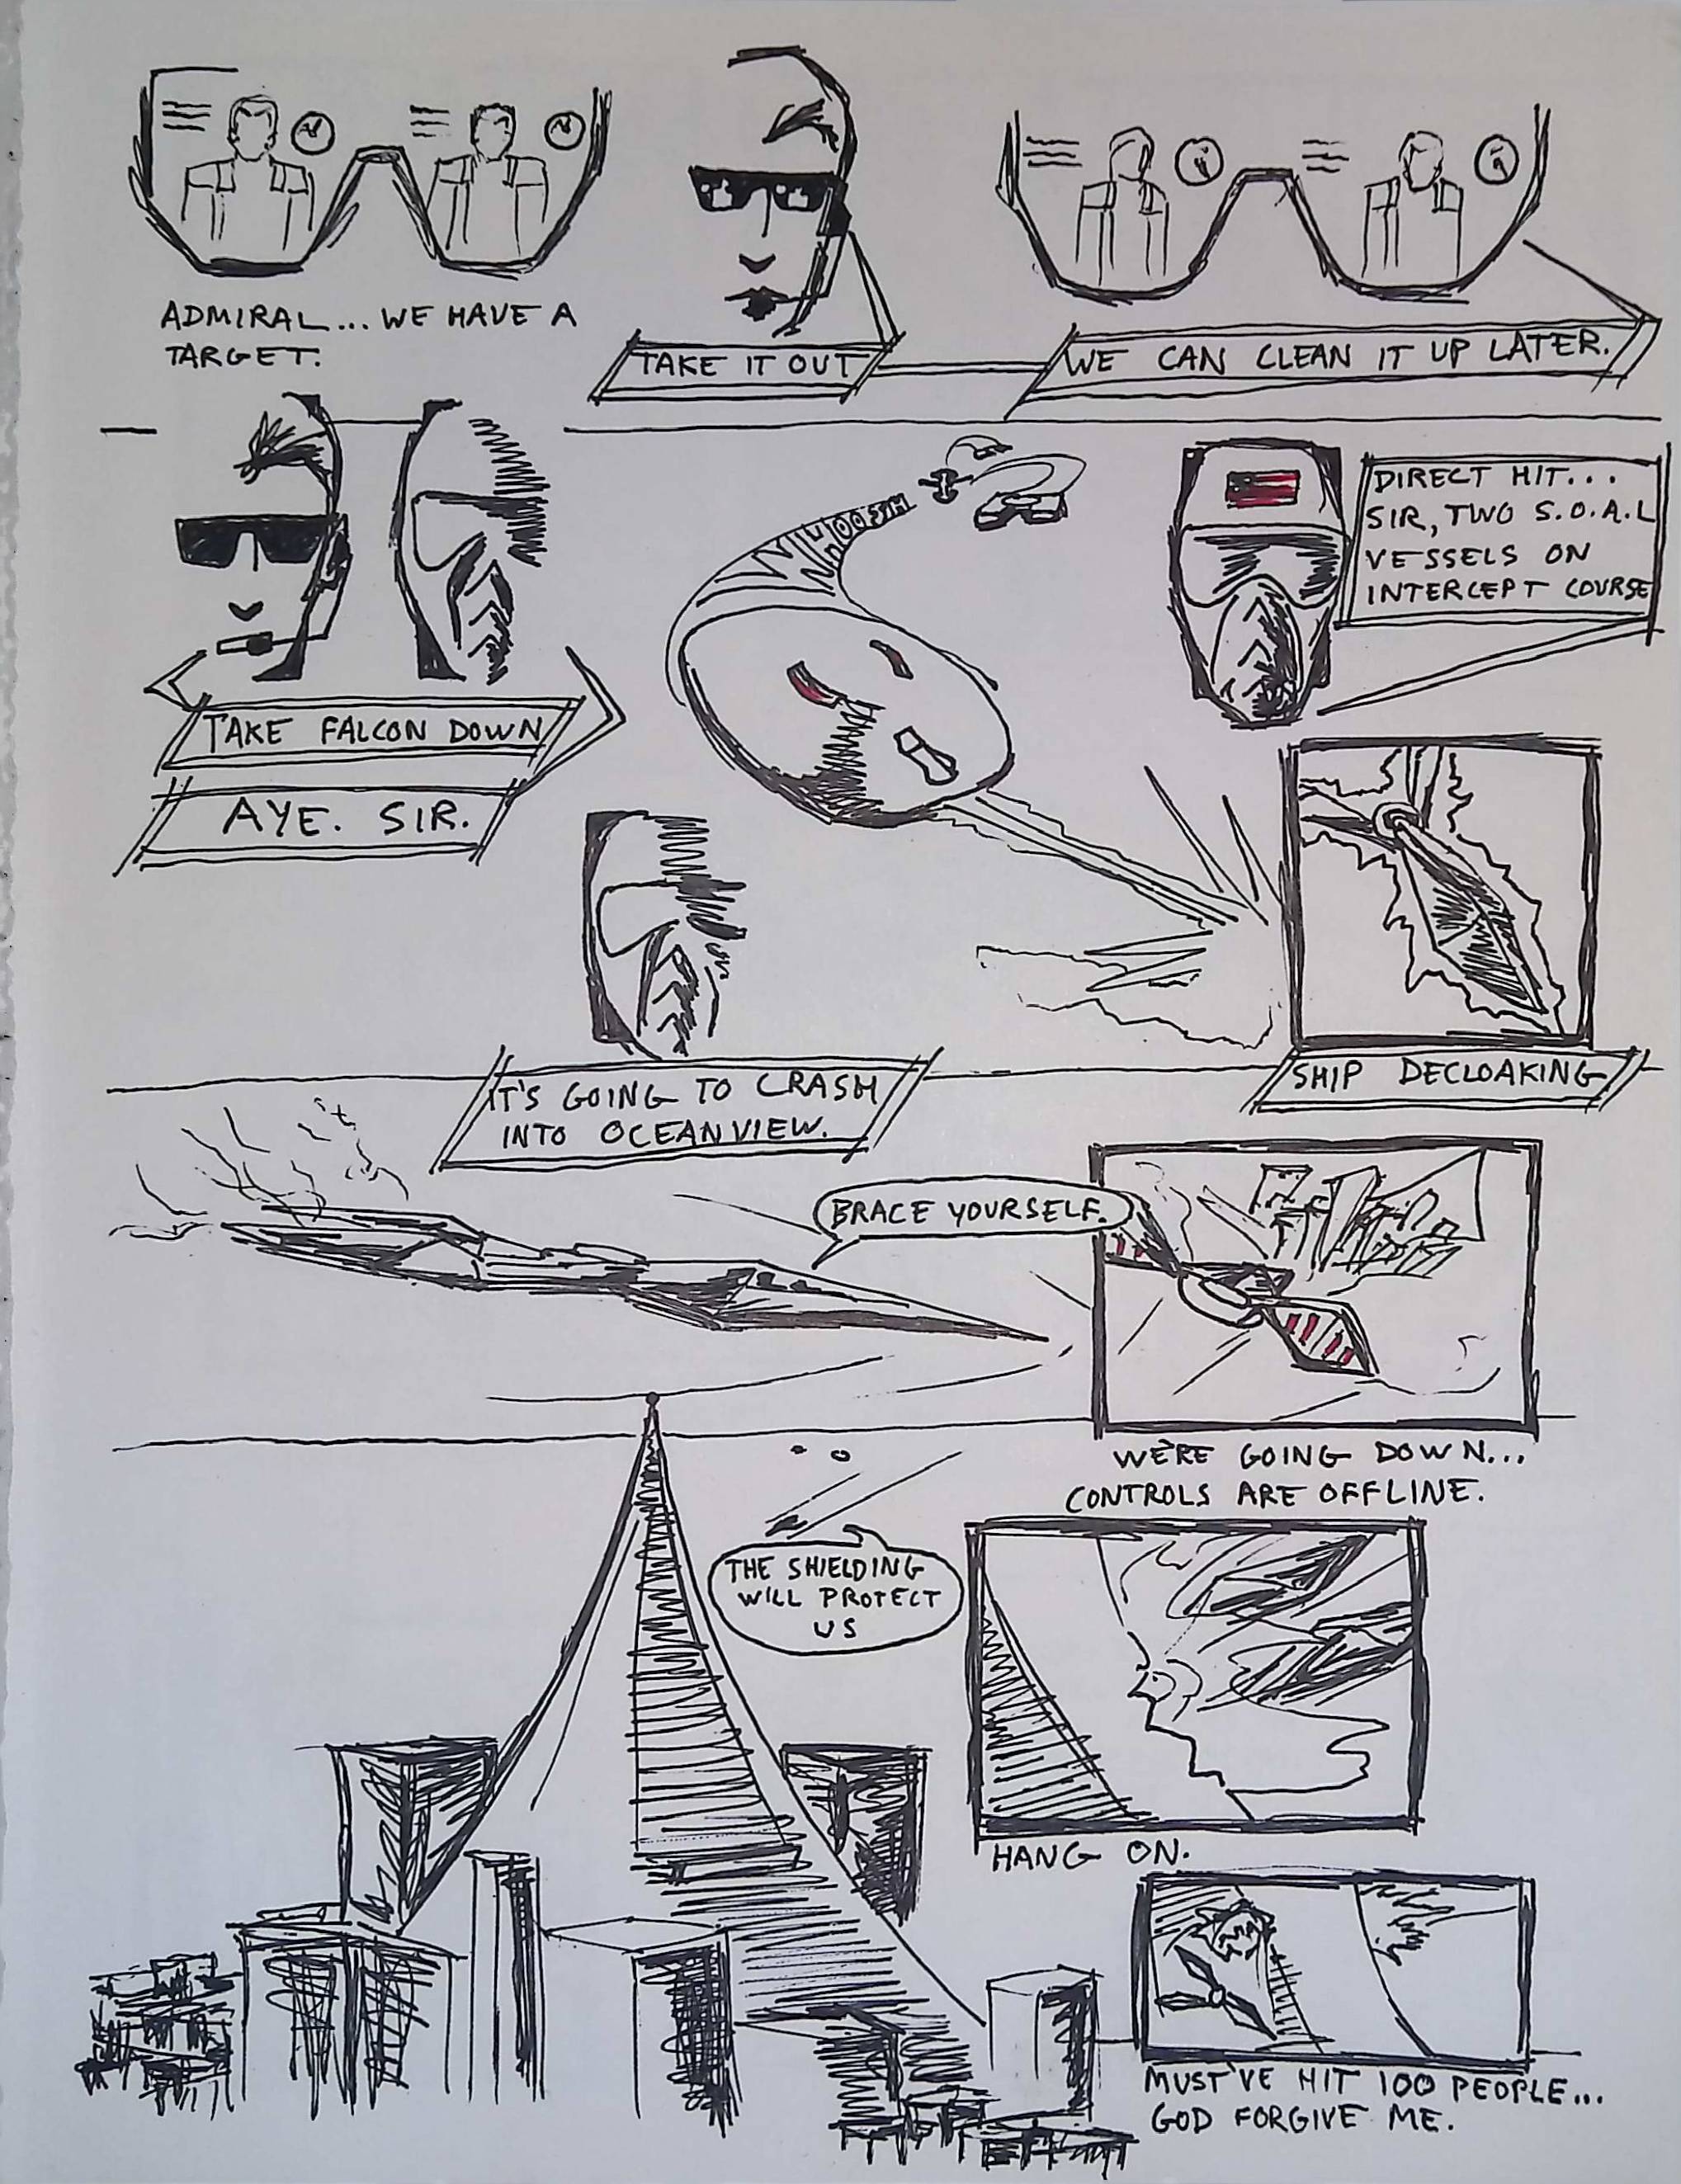 ADMIRAL... WE HAVE A
TARGET.
TAKE IT OUT
WE CAN CLEAN IT UP LATER.
TAKE FALCON DOWN
AYE. SIR.
DIRECT HIT...
SIR, TWO S.O.A.L
VESSELS ON
INTERCEPT COURSE
SHIP DECLOAKING
IT'S GOING TO CRASH
INTO OCEANVIEW.
BRACE YOURSELF.
WE'RE GOING DOWN...
CONTROLS ARE OFFLINE.
THE SHIELDING
WILL PROTECT
US
HANG ON.
MUST'VE HIT 100 PEOPLE...
GOD FORGIVE ME.